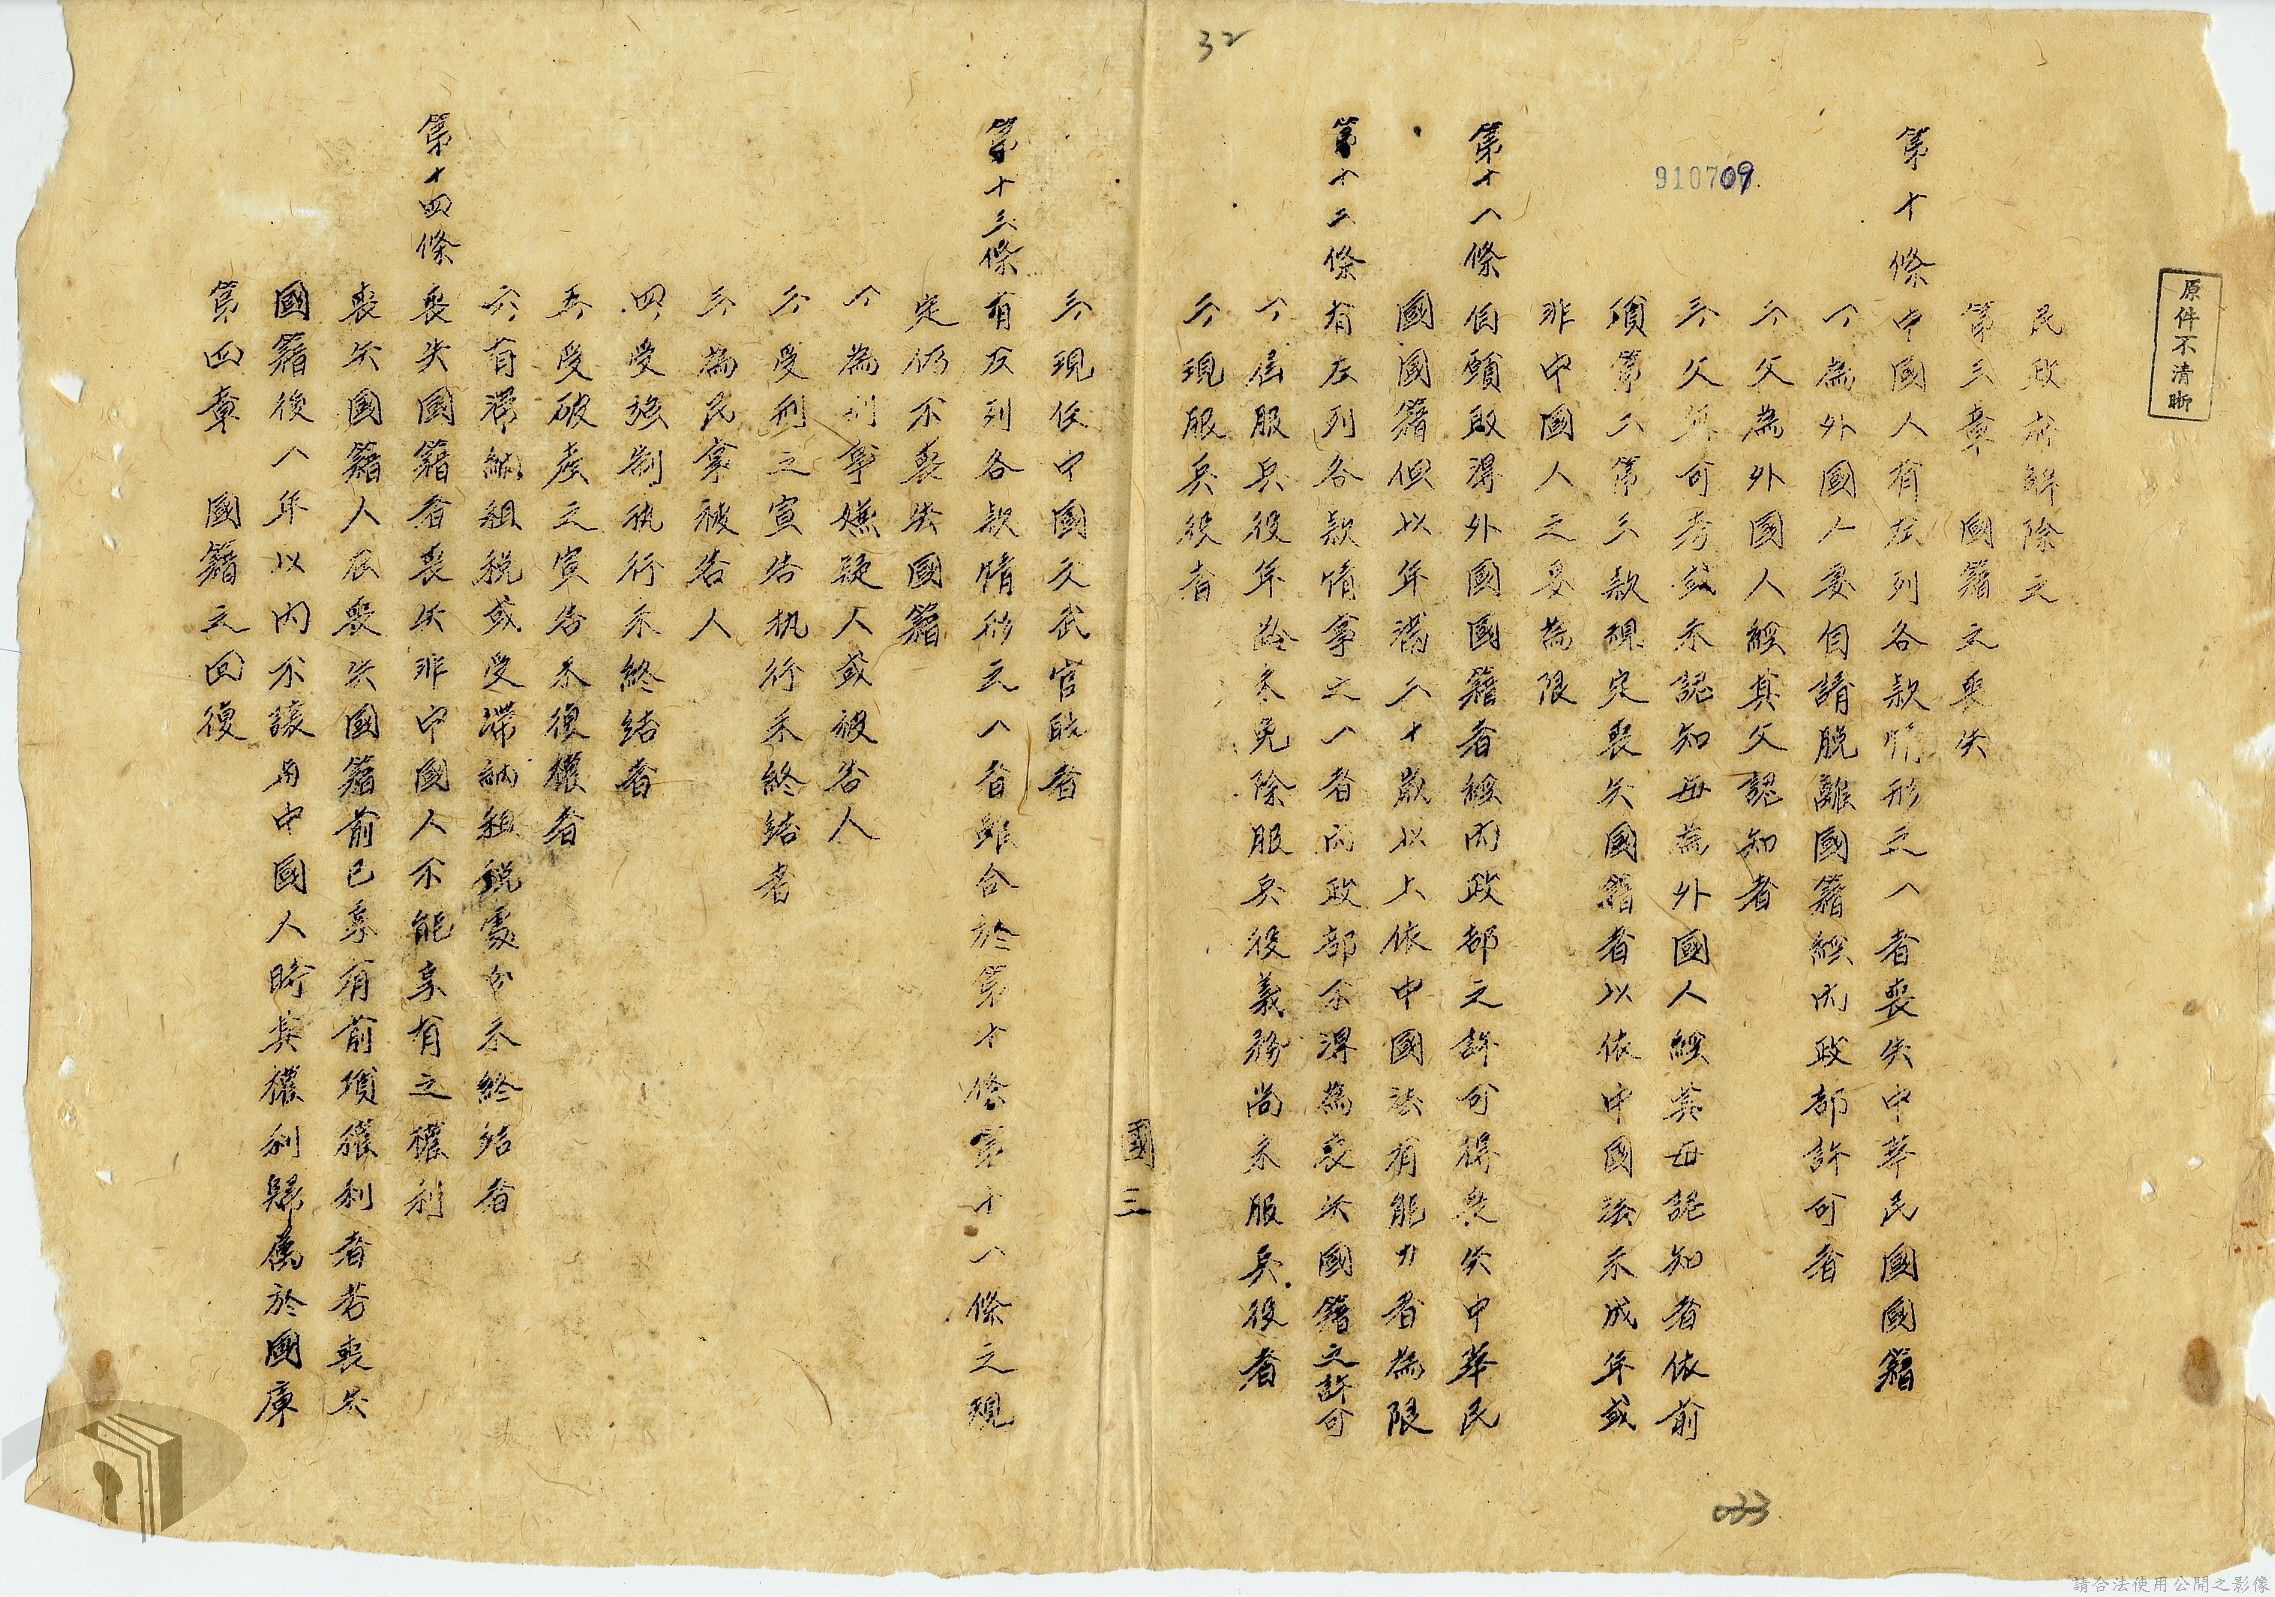 32
910709
原件不清晰
民政府解除之
第三章　國籍之喪失
第十條　中國人有左列各款情形之一者喪失中華民國國籍
一、為外國人妻自請脫離國籍經內政部許可者
二、父為外國人經其父認知者
三、父無可考或未認知母為外國人經其母認知者依前
項第二第三款規定喪失國籍者以依中國法未成年或
非中國人之妻為限
第十一條　自願取得外國國籍者經內政部之許可得喪失中華民
國國籍但以年滿二十歲以上依中國法有能力者為限
第十二條　有左列各款情事之一者內政部不得為喪失國籍之許可
一、屆服兵役年齡未免除服兵役義務尚未服兵役者
二、現服兵役者
國三
三、現任中國文武官職者
第十三條　有左列各款情形之一者雖合於第十條第十一條之規
定仍不喪失國籍
一、為刑事嫌疑人或被告人
二、受刑之宣告執行未終結者
三、為民事被告人
四、受強制執行未終結者
五、受破產之宣告未復權者
六、有滯納租稅或受滯納租稅處分未終結者
第十四條　喪失國籍者喪失非中國人不能享有之權利
喪失國籍人在喪失國籍前已享有前項權利者若喪失
國籍後一年以內不讓與中國人時其權利歸屬於國庫
第四章　國籍之回復
033
請合法使用公開之影像